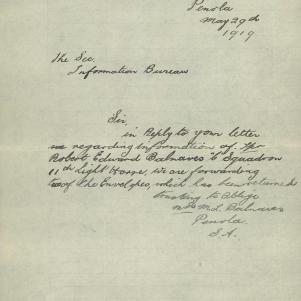 Penola
May 29th
1919
The Sec.
Information Bureau
Sir,
in Reply to your letter
re regarding Information of Tpr
Robert Edward Balnaves C Squadron
11th Light Horse, we are forwarding
two of the Envelopes, which has been returned
trusting to Oblige
M. L. Balnaves
Penola
S.A.